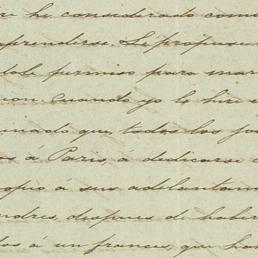 he considerado com
prenderse. Le propuse
dole permiso para mar
cion. Cuando yo le hice
mado que todos los jo
os á Paris, á dedicarse
opio á sus adelantam
ndres, despues de haber
dos á un frances, que ha